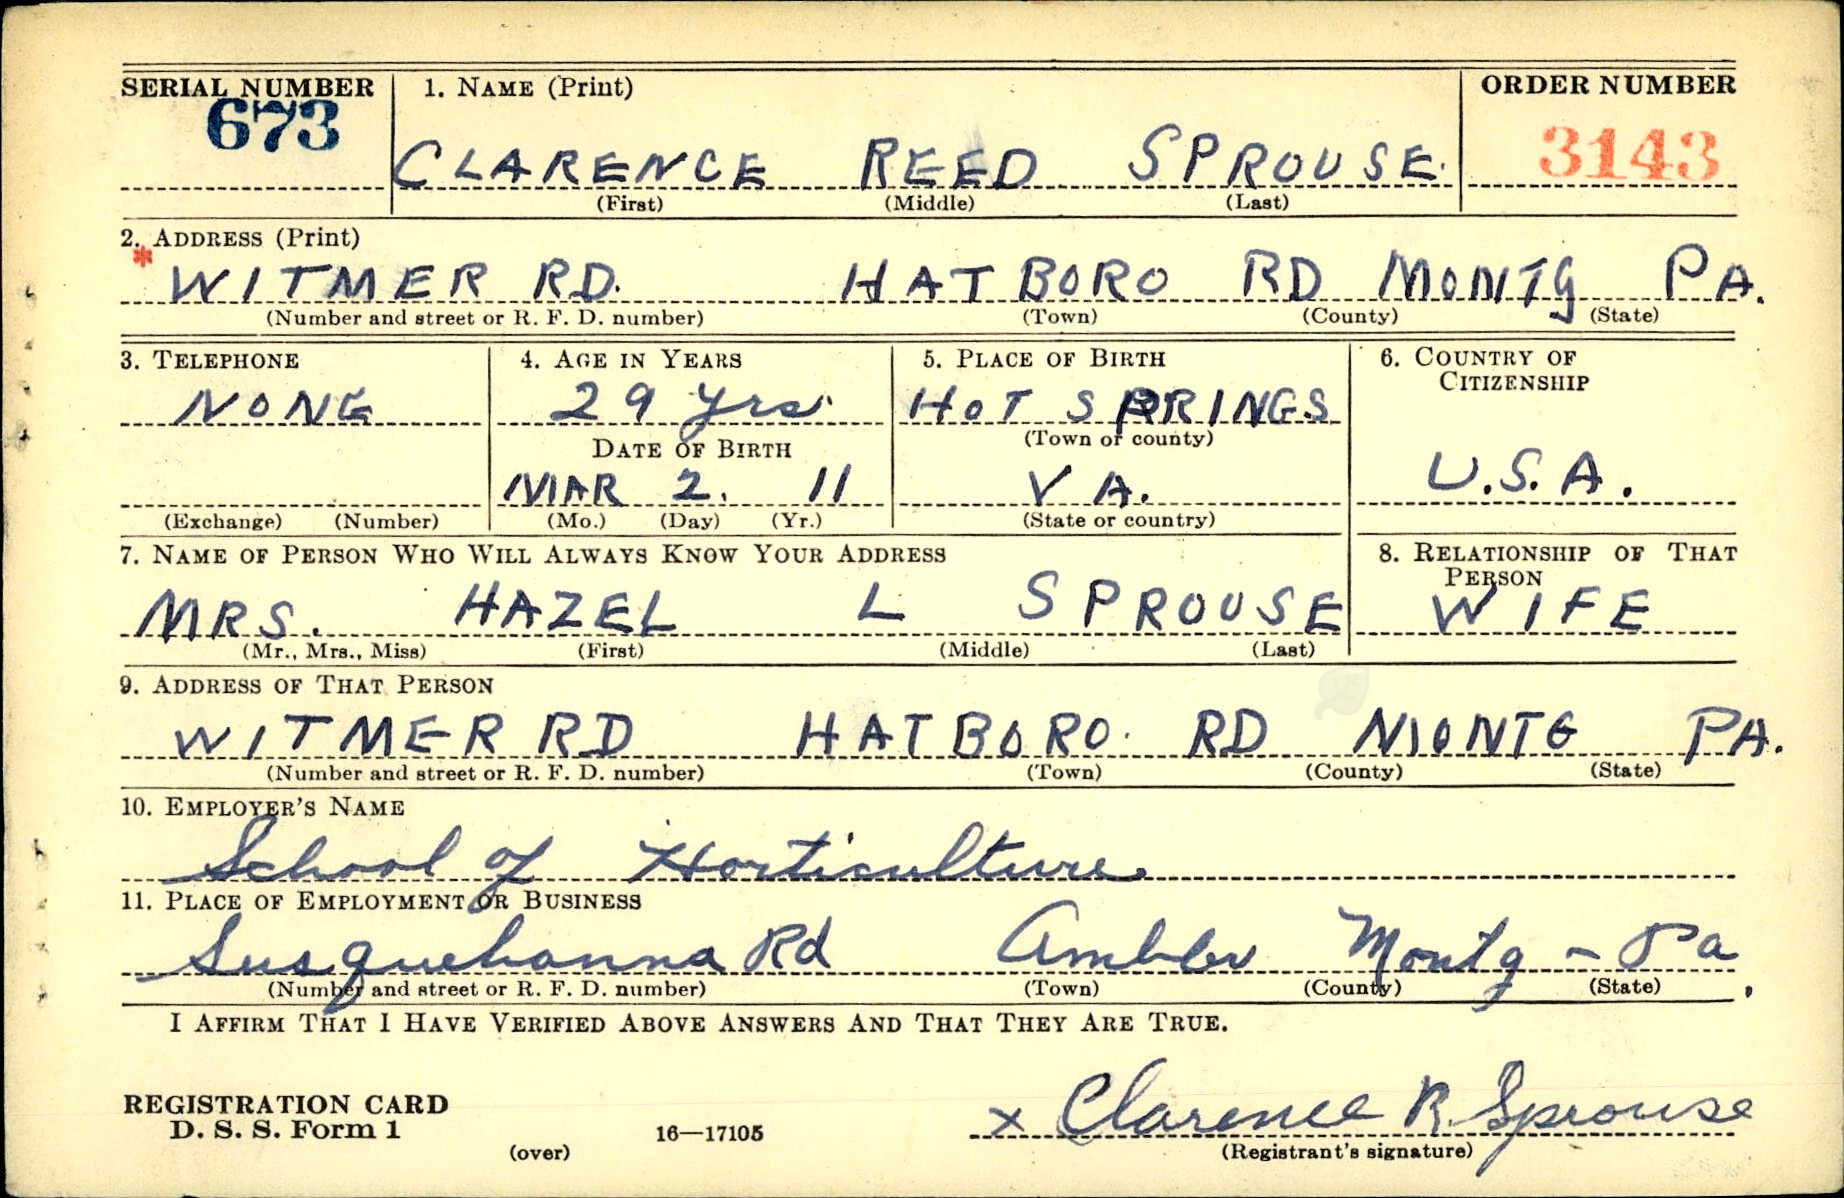 SERIAL NUMBER 1. NAME (Print) ORDER NUMBER
673 CLARENCE REED SPROUSE. 3143
(First) (Middle) (Last)
2. ADDRESS (Print)
* WITMER RD. HATBORO RD MONTG PA.
(Number and street or R. F. D. number) (Town) (County) (State)
3. TELEPHONE 4. AGE IN YEARS 5. PLACE OF BIRTH 6. COUNTRY OF
CITIZENSHIP
NONE 29 yrs. HOT SPRINGS
(Town or county)
DATE OF BIRTH
MAR 2. 11 VA. U.S.A.
(Exchange) (Number) (Mo.) (Day) (Yr.) (State or country)
7. NAME OF PERSON WHO WILL ALWAYS KNOW YOUR ADDRESS 8. RELATIONSHIP OF THAT
PERSON
MRS. HAZEL L SPROUSE WIFE
(Mr., Mrs., Miss) (First) (Middle) (Last)
9. ADDRESS OF THAT PERSON
WITMER RD HATBORO. RD MONTG PA.
(Number and street or R. F. D. number) (Town) (County) (State)
10. EMPLOYER'S NAME
School of Horticulture
11. PLACE OF EMPLOYMENT OR BUSINESS
Susquehanna Rd Ambler Montg - Pa
(Number and street or R. F. D. number) (Town) (County) (State)
I AFFIRM THAT I HAVE VERIFIED ABOVE ANSWERS AND THAT THEY ARE TRUE.
REGISTRATION CARD
D. S. S. Form 1 16—17105 x Clarence R. Sprouse
(over) (Registrant's signature)